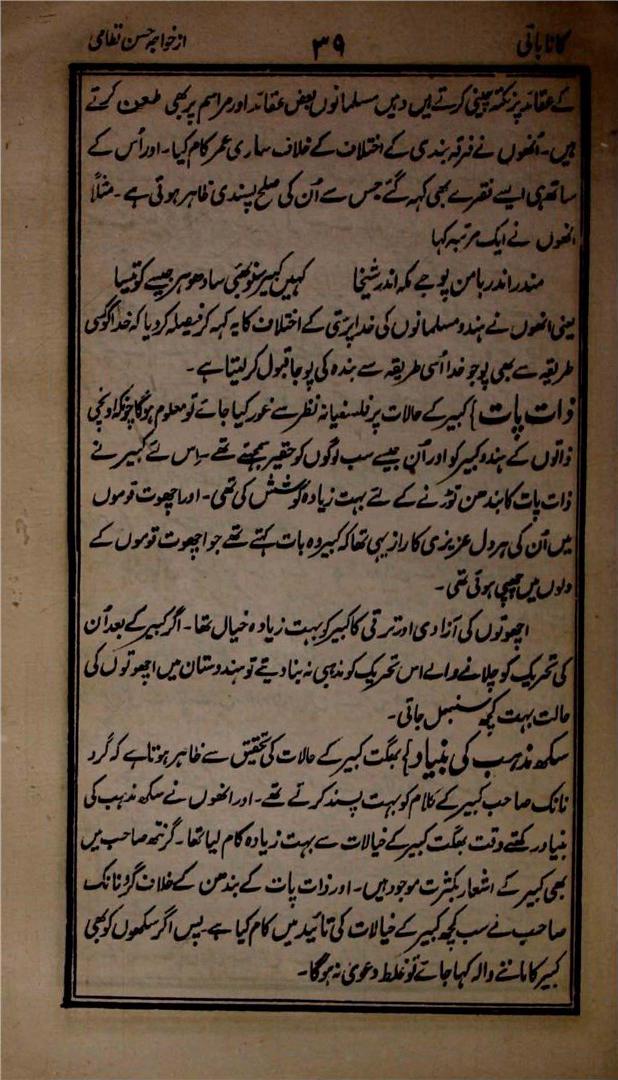 کانا باتی ۳۹ از خواجہ حسن نظامی
کے عقائد پر نکتہ چینی کرتے ہیں وہیں مسلمانوں بعض عقائد اور مراسم پر بھی طعن کرتے
ہیں۔ اُنھوں نے فرقہ بندی کے اختلاف کے خلاف ساری عمر کام کیا۔ اور اُس کے
ساتھ ہی ایسے فقرے بھی کہہ گئے جس سے اُن کی صلح پسندی ظاہر ہوتی ہے۔ مثلاً
انھوں نے ایک مرتبہ کہا
مندر اندر بامن پوجے مکہ اندر شیخا کہیں کبیر سنو بھئی سادھو ہر جیسے کو تیسا
یعنی انھوں نے ہندو مسلمانوں کی خدا پرستی کے اختلاف کا یہ کہہ کر فیصلہ کر دیا کہ خدا کو کسی
طریقہ سے بھی پوجو خدا اُسی طریقہ سے بندہ کی پوجا قبول کر لیتا ہے۔
ذات پات} کبیر کے حالات پر فلسفیانہ نظر سے غور کیا جائے تو معلوم ہوگا چونکہ اونچی
ذاتوں کے ہندو کبیر کو اور اُن جیسے سب لوگوں کو حقیر سمجھتے تھے۔ اِس لئے کبیر نے
ذات پات کا بندھن توڑنے کے لئے بہت زیادہ کوشش کی تھی۔ اور اچھوت قوموں
میں اُن کی ہردل عزیزی کا راز یہی تھا کہ کبیر وہ بات کہتے تھے جو اچھوت قوموں کے
دلوں میں چھپی ہوئی تھی۔
اچھوتوں کی آزادی اور ترقی کا کبیر کو بہت زیادہ خیال تھا۔ اگر کبیر کے بعد اُن
کی تحریک کو چلانے والے اس تحریک کو مذہبی نہ بنا دیتے تو ہندوستان میں اچھوتوں کی
حالت بہت کچھ سنبھل جاتی۔
سکھ مذہب کی بنیاد} بھگت کبیر کے حالات کی تحقیق سے ظاہر ہوتا ہے کہ گرد
نانک صاحب کبیر کے کلام کو بہت پسند کرتے تھے۔ اور انھوں نے سکھ مذہب کی
بنیاد رکھتے وقت بھگت کبیر کے خیالات سے بہت زیادہ کام لیا تھا۔ گرنتھ صاحب میں
بھی کبیر کے اشعار بکثرت موجود ہیں۔ اور ذات پات کے بندھن کے خلاف گرُو نانک
صاحب نے سب کچھ کبیر کے خیالات کی تائید میں کام کیا ہے پس اگر سکھوں کو بھی
کبیر کا ماننے والہ کہا جائے تو غلط دعویٰ نہ ہوگا۔